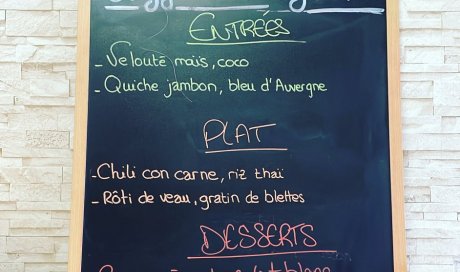 ENTRÉES
- Velouté maïs, coco
- Quiche jambon, bleu d'Auvergne
PLAT
- Chili con carne, riz thaï
- Rôti de veau, gratin de blettes
DESSERTS